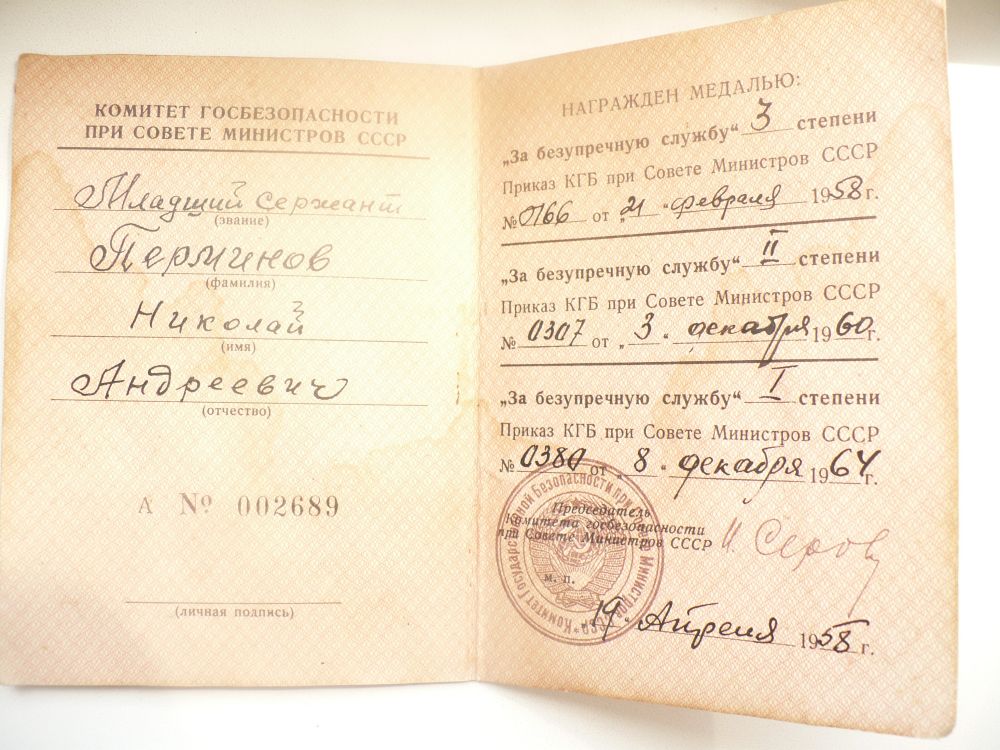 КОМИТЕТ ГОСБЕЗОПАСНОСТИ
ПРИ СОВЕТЕ МИНИСТРОВ СССР
Младший Сержант
(звание)
Перминов
(фамилия)
Николай
(имя)
Андреевич
(отчество)
А № 002689
(личная подпись)
НАГРАЖДЕН МЕДАЛЬЮ:
„За безупречную службу“ 3 степени
Приказ КГБ при Совете Министров СССР
№ 0166 от „21“ февраля 1958 г.
„За безупречную службу“ II степени
Приказ КГБ при Совете Министров СССР
№ 0307 от „3“ декабря 1960 г.
„За безупречную службу“ I степени
Приказ КГБ при Совете Министров СССР
№ 0380 от „8“ декабря 1964 г.
Председатель
Комитета госбезопасности
при Совете Министров СССР И. Серов
м. п.
Комитет Государственной Безопасности при Совете Министров СССР
„19“ Апреля 1958 г.